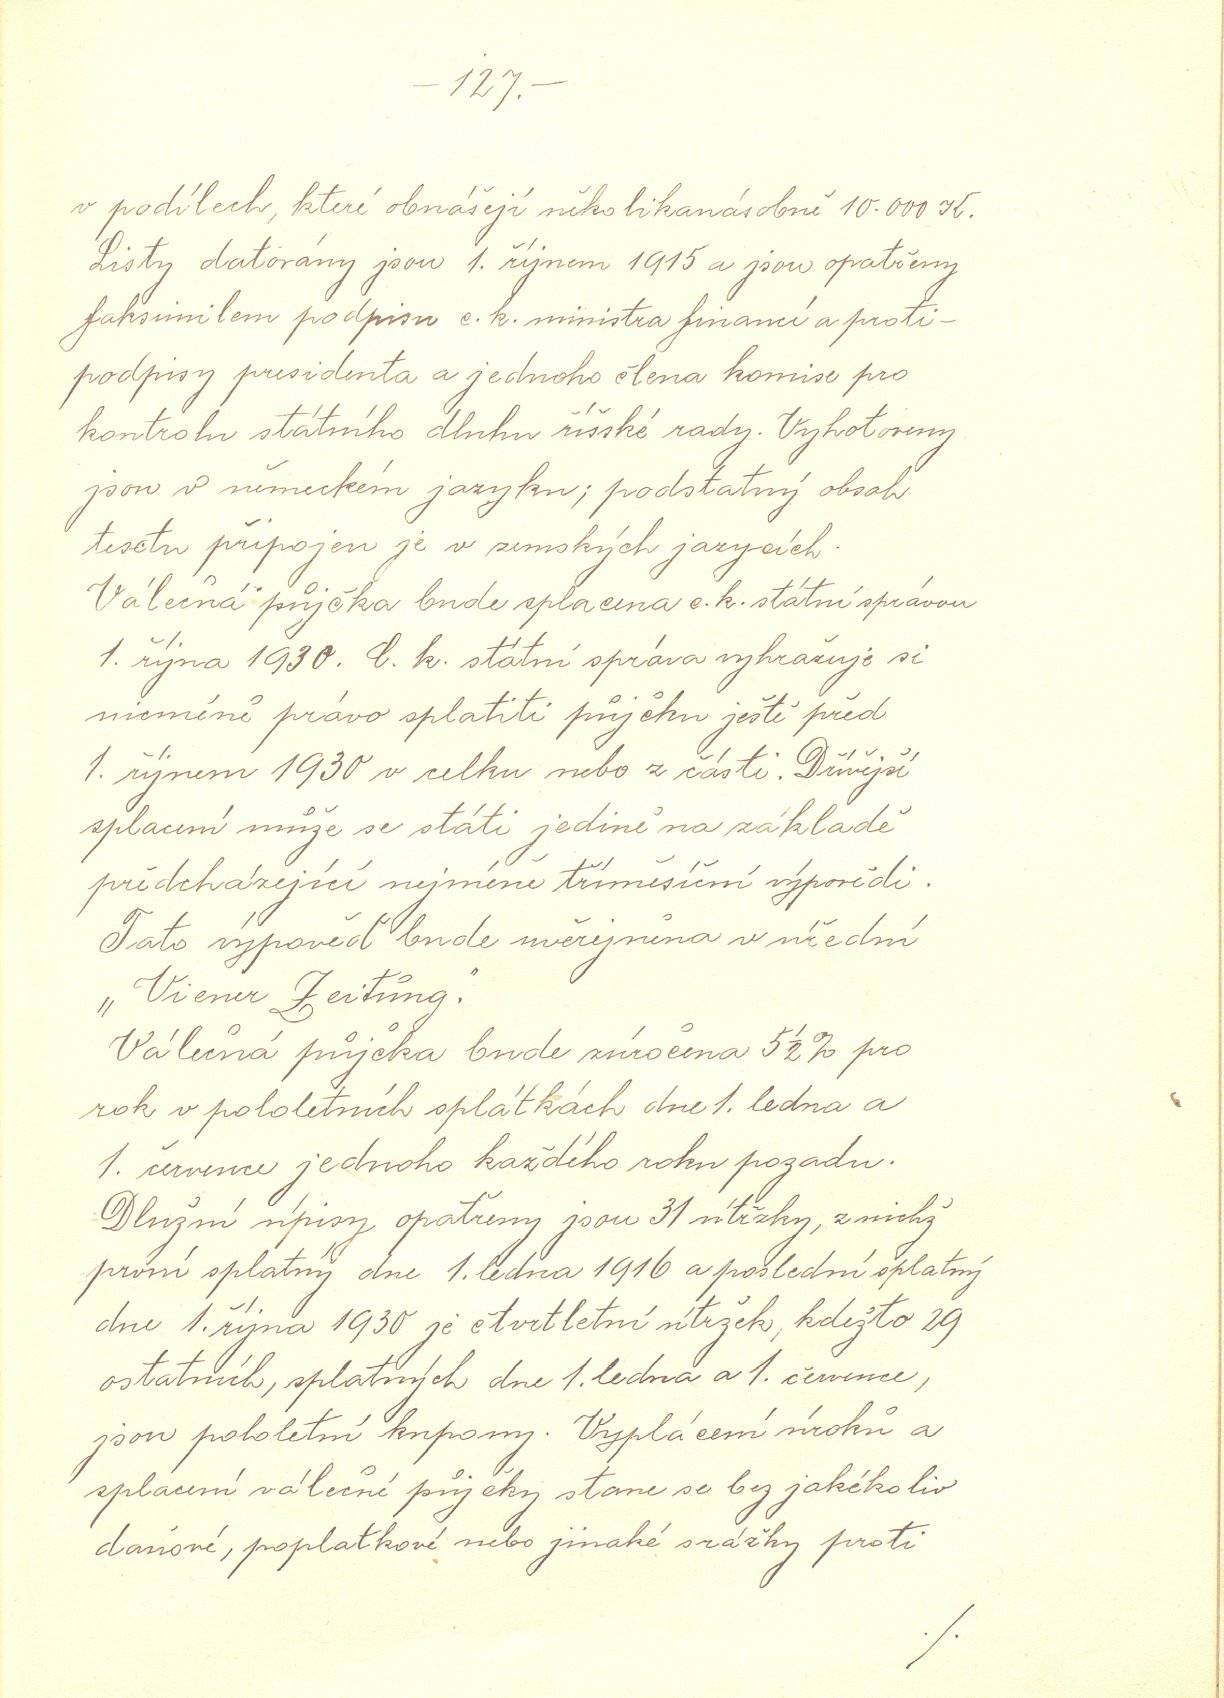 – 127. –
v podílech, které obnášejí několikanásobně 10.000 K.
Listy datovány jsou 1. říjnem 1915 a jsou opatřeny
faksimilem podpisu c. k. ministra financí a proti-
podpisy presidenta a jednoho člena komise pro
kontrolu státního dluhu říšské rady. Vyhotoveny
jsou v německém jazyku; podstatný obsah
textu připojen je v zemských jazycích.
Válečná půjčka bude splacena c. k. státní správou
1. října 1930. C. k. státní správa vyhražuje si
nicméně právo splatiti půjčku ještě před
1. říjnem 1930 v celku nebo z části. Dřívější
splacení může se státi jedině na základě
předcházející nejméně tříměsíční výpovědi.
Tato výpověď bude uveřejněna v úřední
„Viener Zeitung."
Válečná půjčka bude zúročena 5½% pro
rok v pololetních splátkách dne 1. ledna a
1. července jednoho každého roku pozadu.
Dlužní úpisy opatřeny jsou 31 útržky, z nichž
první splatný dne 1. ledna 1916 a poslední splatný
dne 1. října 1930 je čtvrtletní útržek, kdežto 29
ostatních, splatných dne 1. ledna a 1. července,
jsou pololetní kupony. Vyplácení úroků a
splacení válečné půjčky stane se bez jakékoliv
daňové, poplatkové nebo jinaké srážky proti
./.